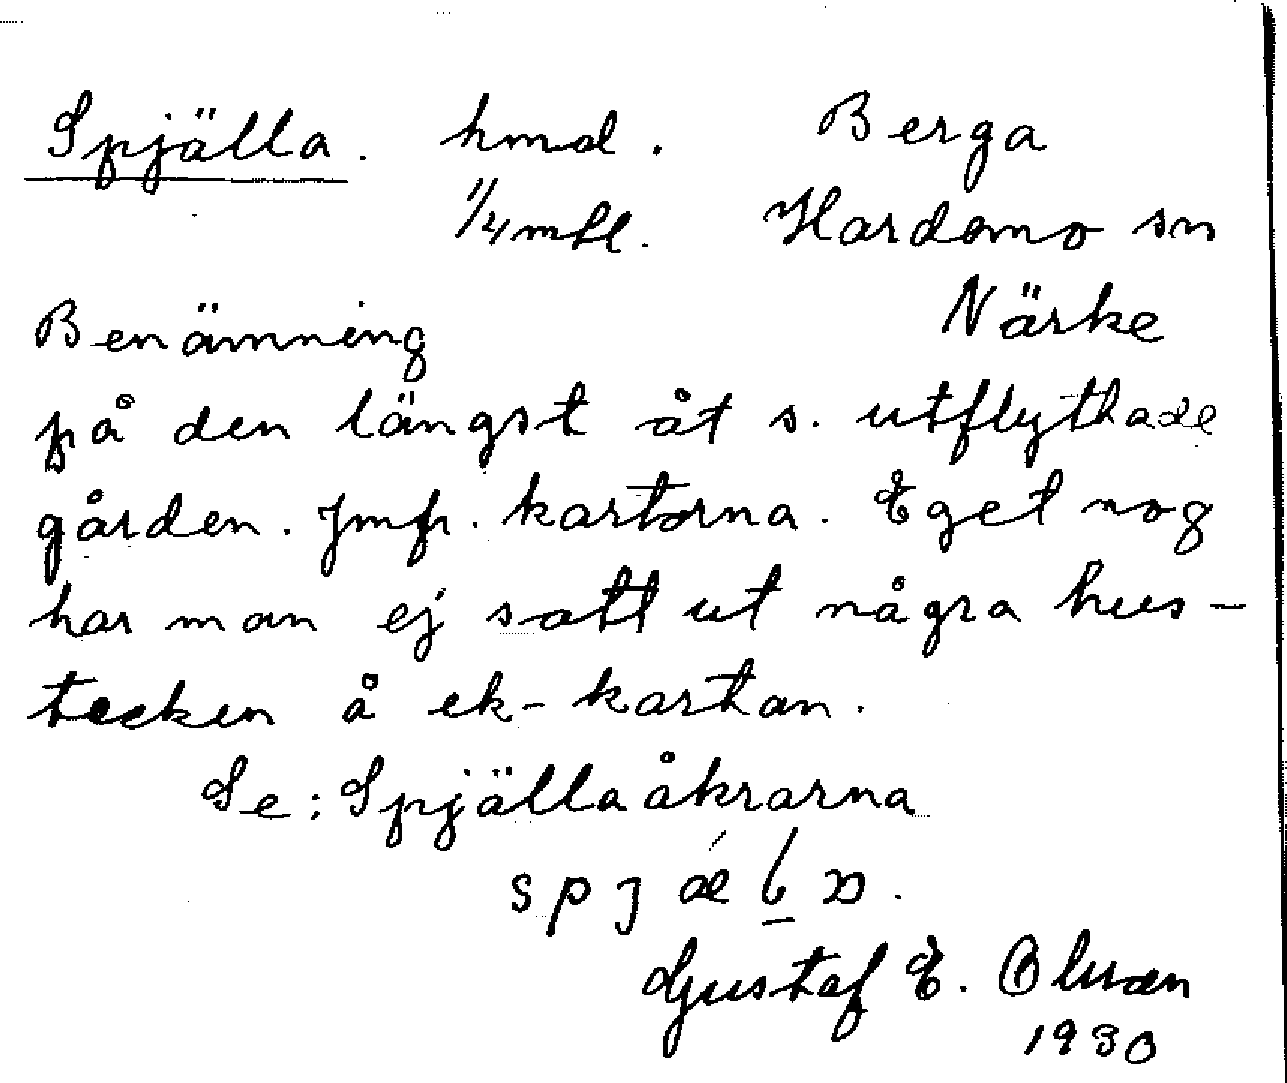 Spjälla. hmd. Berga
1/4 mtl. Hardemo sn
Benämning Närke
på den längst åt s. utflyttade
gården. Jmfr. kartorna. Eget nog
har man ej satt ut några hus-
tecken å ek-kartan.
Se: Spjällaåkrarna
Gustaf E. Olsson
1930